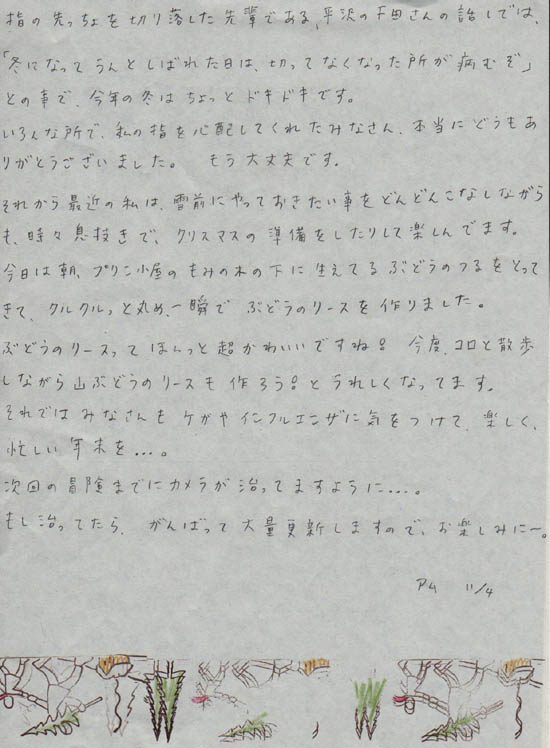 指の先っちょを切り落した先輩である、平沢の千田さんの話しでは、
「冬になってうんとしばれた日は、切ってなくなった所が病むぞ」
との事で、今年の冬はちょっとドキドキです。
いろんな所で、私の指を心配してくれたみなさん、本当にどうもあ
りがとうございました。 もう大丈夫です。
それから最近の私は、雪前にやっておきたい事をどんどんこなしながら
も、時々息抜きで、クリスマスの準備をしたりして楽しんでます。
今日は朝、プリン小屋のもみの木の下に生えてるぶどうのつるをとって
きて、クルクルっと丸め、一瞬でぶどうのリースを作りました。
ぶどうのリースってほんっと超かわいいですね! 今度、コロと散歩
しながら山ぶどうのリースも作ろう!とうれしくなってます。
それではみなさんもケガやインフルエンザに気をつけて、楽しく、
忙しい年末を...。
次回の冒険までにカメラが治ってますように...。
もし治ってたら、がんばって大量更新しますので、お楽しみに〜。
アム 11/4